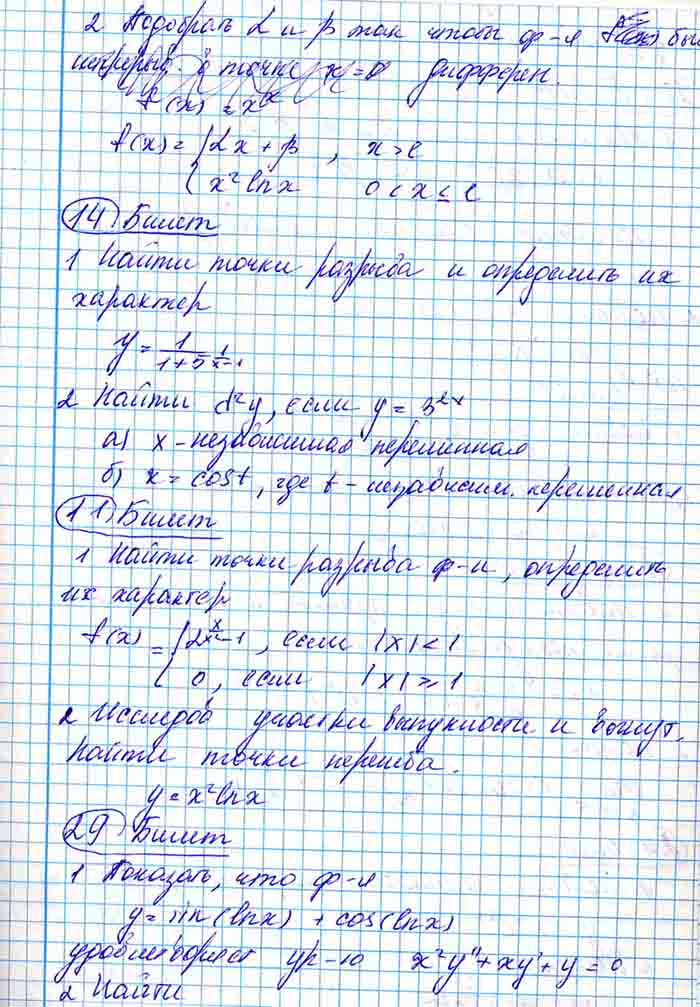 2 Подобрать α и β так чтобы ф-я f(x) бы
непрерыв. в точке x=0 дифферен.
f(x) = x^x
f(x) = { αx + β , x > e
x² ln x 0 < x ≤ e
14 Билет
1 Найти точки разрыва и определить их
характер
y = 1/(1+5^(1/(x-1)))
2 Найти d²y, если y = 3^(2x)
а) x - независимая переменная
б) x = cos t, где t - независим. переменная
11 Билет
1 Найти точки разрыва ф-и, определить
их характер
f(x) = { 2^(x/(x²-1)), если |x| < 1
0, если |x| ≥ 1
2 Исследов участки выпуклости и вогнут.
Найти точки перегиба.
y = x² ln x
29 Билет
1 Показать, что ф-я
y = sin(ln x) + cos(ln x)
удовлетворяет ур-ю x²y'' + xy' + y = 0
2 Найти